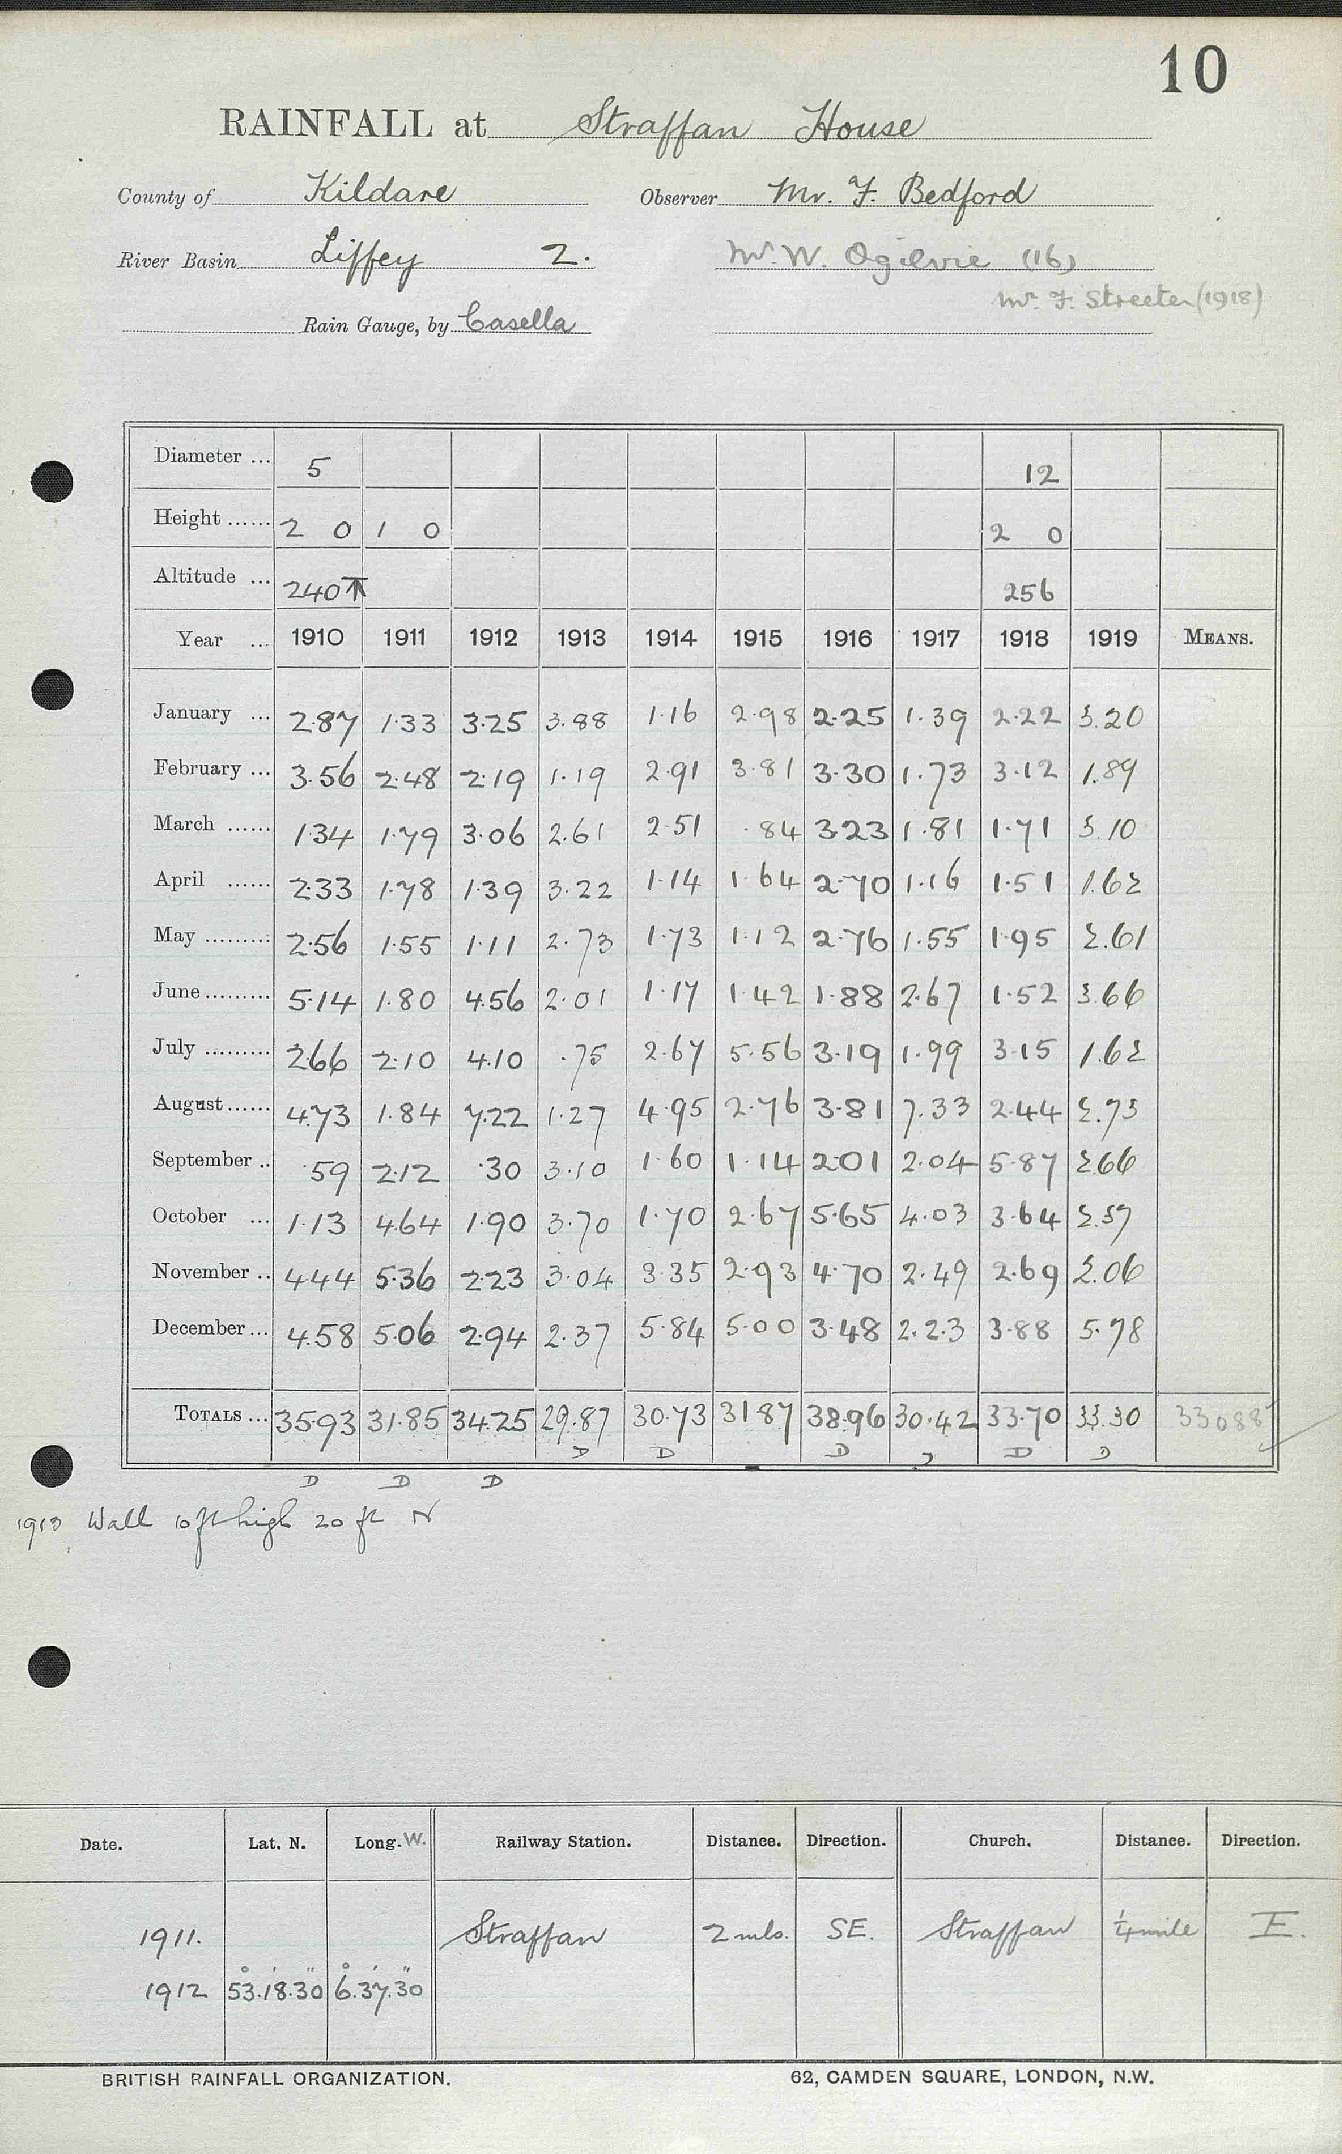 10
RAINFALL at Straffan House
County of Kildare Observer Mr. F. Bedford
River Basin Liffey 2. Mr. W. Ogilvie (16)
Mr. F. Streeter (1918)
Rain Gauge, by Casella
Diameter ... 5 12
Height ...... 2 0 1 0 2 0
Altitude ... 240 T 256
Year ... 1910 1911 1912 1913 1914 1915 1916 1917 1918 1919 MEANS.
January ... 2.87 1.33 3.25 3.88 1.16 2.98 2.25 1.39 2.22 3.20
February ... 3.56 2.48 2.19 1.19 2.91 3.81 3.30 1.73 3.12 1.89
March ...... 1.34 1.79 3.06 2.61 2.51 .84 3.23 1.81 1.71 3.10
April ...... 2.33 1.78 1.39 3.22 1.14 1.64 2.70 1.16 1.51 1.62
May ......... 2.56 1.55 1.11 2.73 1.73 1.12 2.76 1.55 1.95 2.61
June ......... 5.14 1.80 4.56 2.01 1.17 1.42 1.88 2.67 1.52 3.66
July ......... 2.66 2.10 4.10 .75 2.67 5.56 3.19 1.99 3.15 1.62
August ...... 4.73 1.84 7.22 1.27 4.95 2.76 3.81 7.33 2.44 2.73
September .. .59 2.12 .30 3.10 1.60 1.14 2.01 2.04 5.87 2.66
October ... 1.13 4.64 1.90 3.70 1.70 2.67 5.65 4.03 3.64 2.37
November .. 4.44 5.36 2.23 3.04 3.35 2.93 4.70 2.49 2.69 2.06
December ... 4.58 5.06 2.94 2.37 5.84 5.00 3.48 2.23 3.88 5.78
TOTALS ... 35.93 31.85 34.25 29.87 30.73 31.87 38.96 30.42 33.70 33.30 33.088
D D D D D D
D D D
Wall 10 ft high 20 ft N
Date. Lat. N. Long. W. Railway Station. Distance. Direction. Church. Distance. Direction.
1911. Straffan 2 mls. SE. Straffan ¼ mile E.
1912 53° 18' 30" 6° 37' 30"
BRITISH RAINFALL ORGANIZATION. 62, CAMDEN SQUARE, LONDON, N.W.